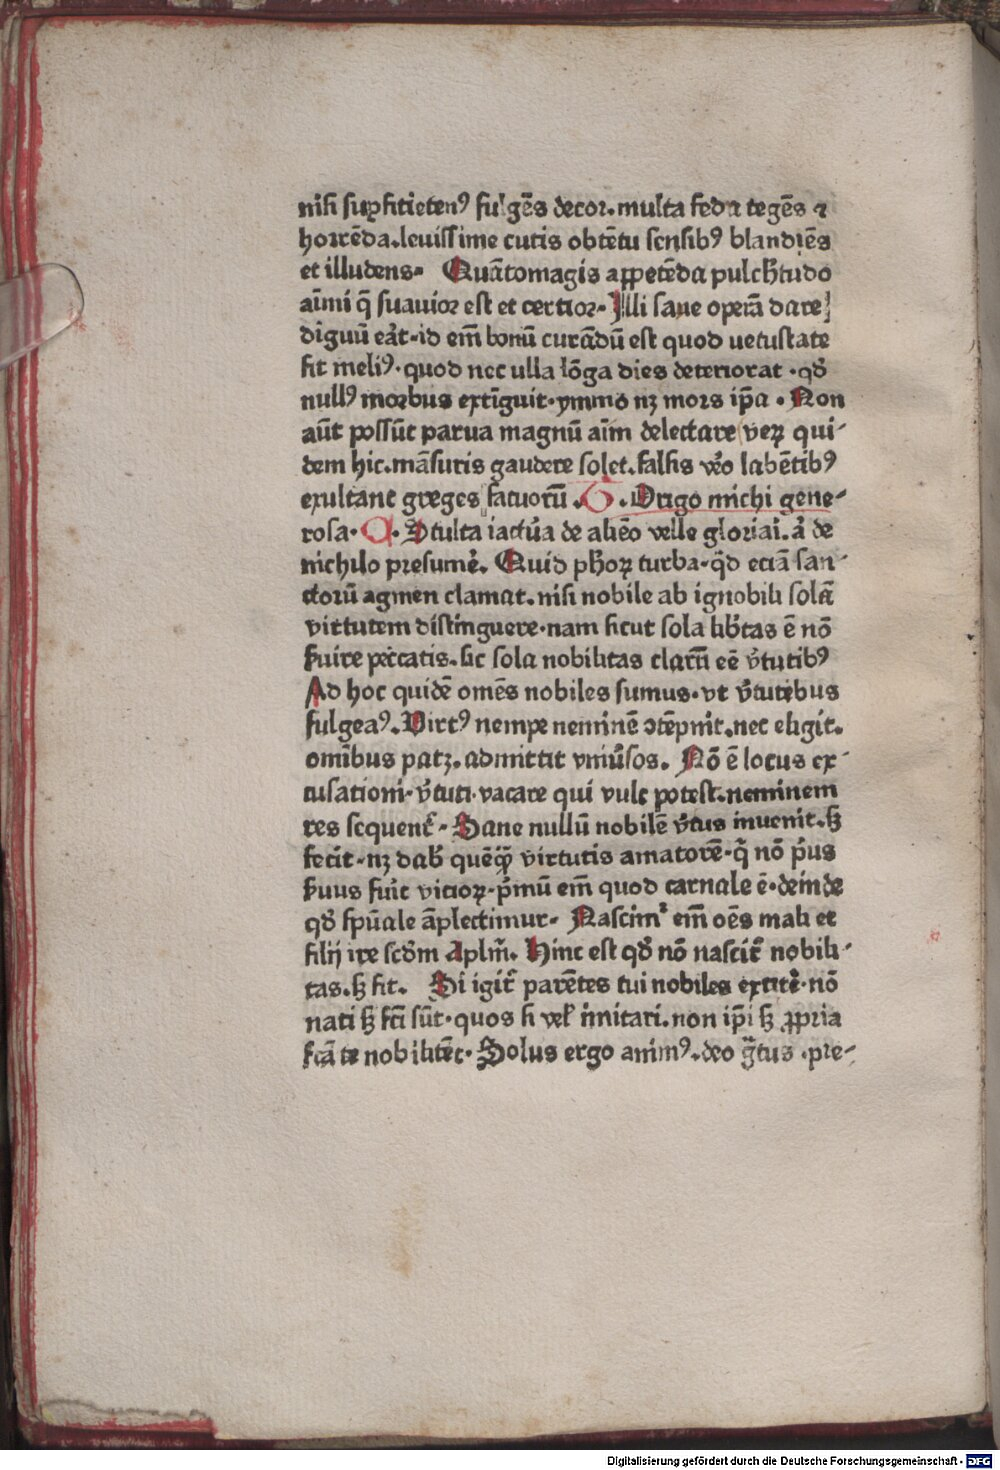 nisi suꝑfitietenꝰ fulgēs decor. multa feda tegēs ⁊
horrēda. leuissime cutis obtētu sensibꝰ blandiēs
et illudens. Quātomagis aꝑpetēda pulch̄tudo
aīmi q̄ suauior est et certior. Illi saue operā dare
dignuū eāt. id em̄ bonū curādū est quod uetustate
fit meliꝰ. quod nec ulla lōga dies deteriorat. qd̄
nullꝰ morbus extīguit. ymmo nꝫ mors ip̄a. Non
aūt possūt parua magnū aīm delectare veꝝ qui-
dem hic. māsuris gaudere solet. falsis v̄o labētibꝰ
exultant greges fatuorū. G. Origo michi gene-
rosa. C. Stulta iactūa de aliēo velle gloriari. a᷑ de
nichilo presume᷑. Quid ph̄oꝝ turba. qd̄ eciā san-
ctorū agmen clamat. nisi nobile ab ignobili solā
virtutem distinguere. nam sicut sola lib̄tas ē nō
suire peccatis. sic sola nobilitas clarū eē v̄tutibꝰ
Ad hoc quidē omēs nobiles sumus. vt v̄tutibus
fulgeaꝰ. Virtꝰ nempe neminē ↄtēpnit. nec eligit.
omībus patꝫ. admittit vniūsos. Nō ē locus ex-
cusationi. v̄tuti. vacare qui vult potest. neminem
res sequent᷑. Sane nullū nobilē v̄tus inuenit. sꝫ
fecit. nꝫ dab᷑ quēqꝫ virtutis amatorē. q̄ nō p̄us
suus fuit vicioꝝ. p̄mū em̄ quod carnale ē. deinde
qd̄ sp̄uale āplectimur. Nascimᷣ em̄ oēs mali et
filij ire scd̄m Aplm̄. Hinc est qd̄ nō nascit᷑ nobili-
tas. sꝫ fit. Si igit᷑ parētes tui nobiles extite᷑. nō
nati sꝫ fc̄i sūt. quos si vel᷑ īmitari. non ip̄i sꝫ ꝓpria
fc̄ā te nobilitēt. Solus ergo animꝰ. deo g̃tus. pre-
Digitalisierung gefördert durch die Deutsche Forschungsgemeinschaft - DFG